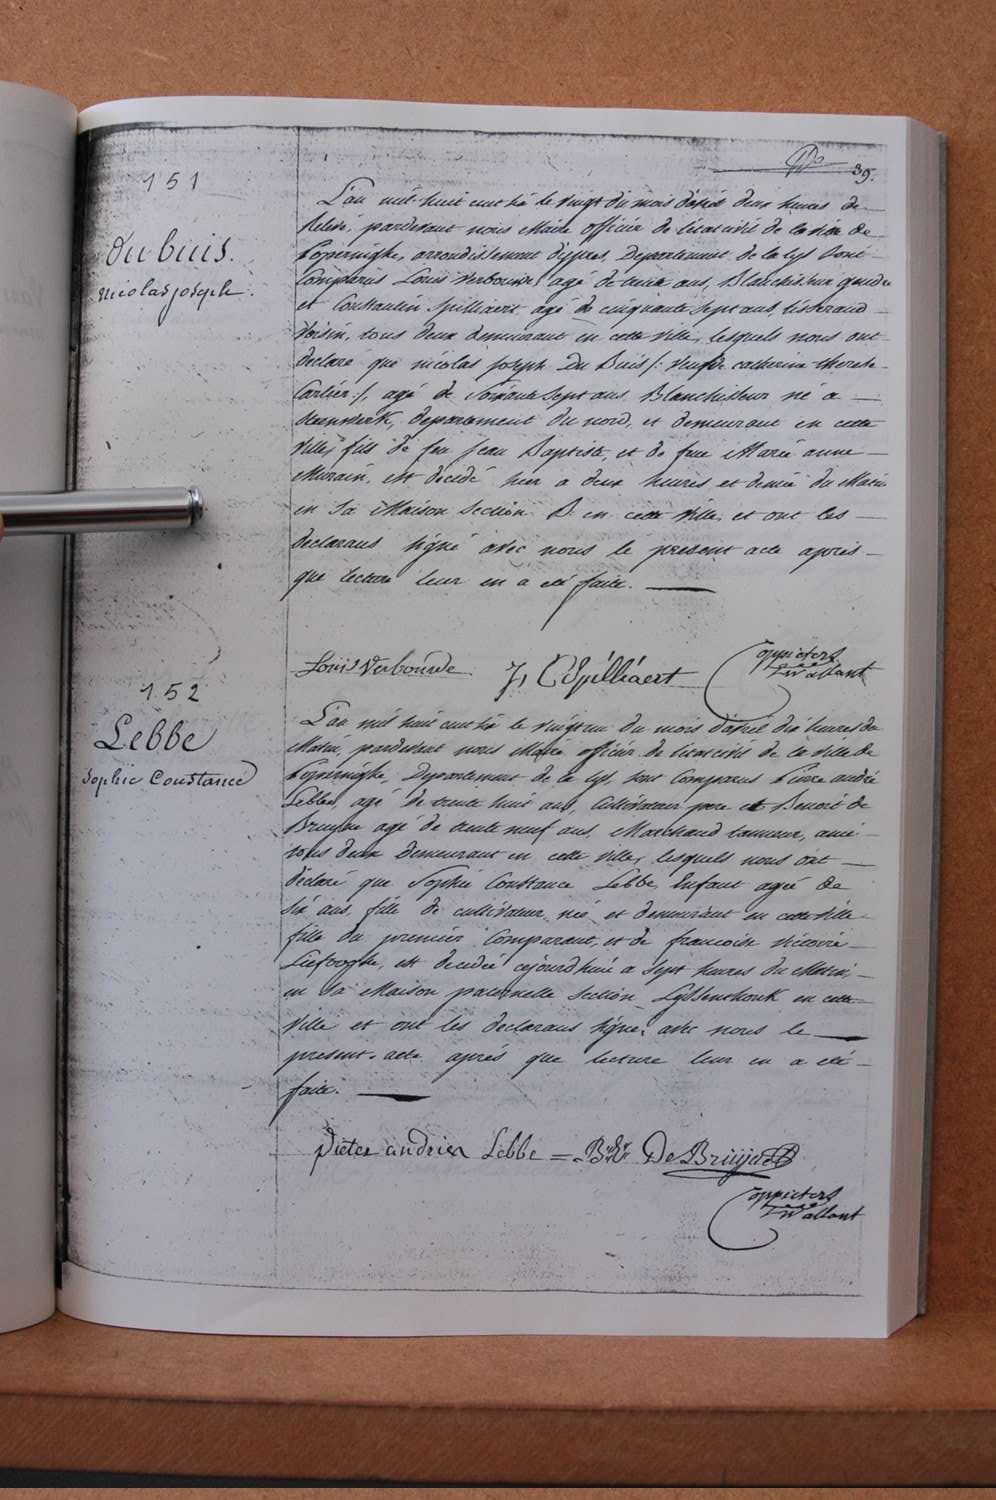 39.
151
du buis.
nicolas joseph.
L'an mil huit cent le vingt du mois d'avril deux heures de
relevé, pardevant nous Maire officier de l'etat civil de la ville de
Poperinghe, arrondissement d'ypres, Departement de la Lys sont
Comparus Louis Verbourde, agé de ans, Blanchisseur
et Constantin Spilliaert agé de cinquante sept ans, tisserand
Voisin, tous deux demeurant en cette ville, lesquels nous ont
declaré que nicolas joseph Du Buis /: Veuf de catherine therese
Carlier :/, agé de Soixante sept ans Blanchisseur né a
departement du nord, et demeurant en cette
ville, fils de feu jean Baptiste, et de feue Marie anne
est decedé hier a deux heures et demie du Matin
en Sa Maison Section B. en cette ville, et ont les
declarans signé avec nous le present acte apres
que lecture leur en a eté faite.
Louis Verbourde J, C Spilliaert
152
Lebbe
Sophie Constance
L'an mil huit cent le vingt un du mois d'avril dix heures du
Matin, pardevant nous Maire officier de l'etat civil de la ville de
Poperinghe, Departement de la Lys, sont Comparus Pierre andré
Lebbe, agé de trente huit ans, Cultivateur pere et Benoit de
Bruyne agé de trente neuf ans, Marchand tanneur, ami
tous deux Demeurant en cette ville, lesquels nous ont
declaré que Sophie Constance Lebbe, Enfant agée de
six ans, fille de cultivateur, née et demeurant en cette ville
fille du premier Comparant, et de francoise victoire
Liefooghe, est decedée cejourd'hui a sept heures du Matin
en sa Maison paternelle Section en cette
Ville et ont les declarans signé, avec nous le
present acte aprés que lecture leur en a eté
faite.
Pieter andries Lebbe = De Bruyne